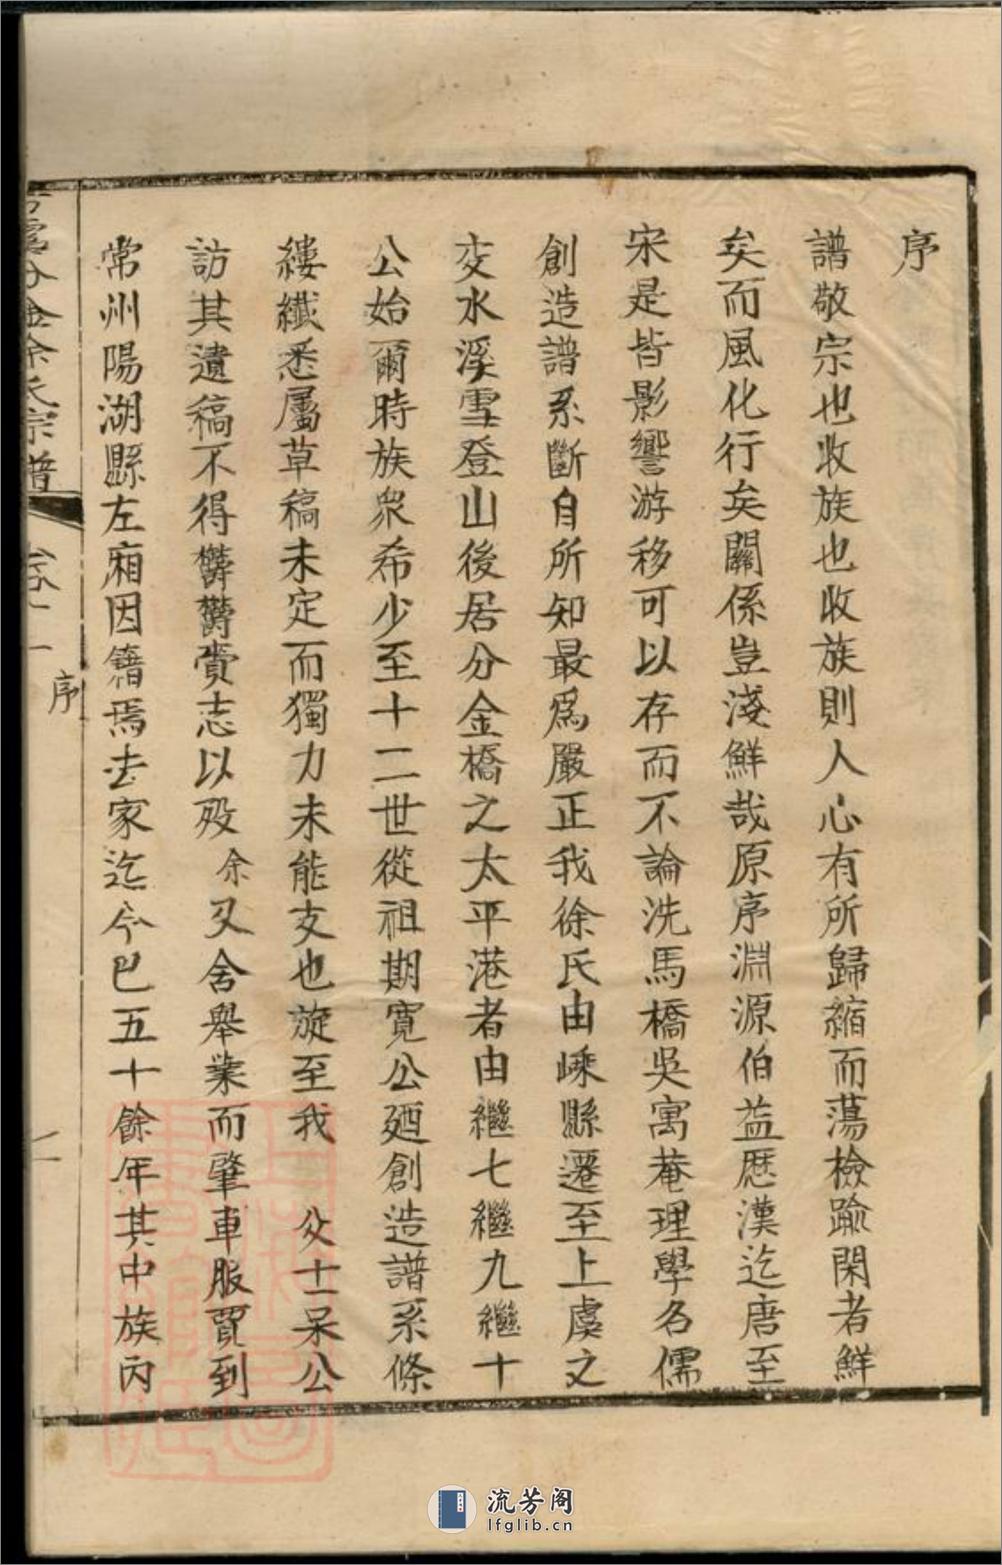 序
譜敬宗也收族也收族則人心有所歸縮而蕩檢踰閑者鮮
矣而風化行矣關係豈淺鮮哉原序淵源伯益歷漢迄唐至
宋是皆影響游移可以存而不論洗馬橋吳寓菴理學名儒
創造譜系斷自所知最為嚴正我徐氏由嵊縣遷至上虞之
交水溪雪登山後居分金橋之太平港者由繼七繼九繼十
公始爾時族衆希少至十二世從祖期寬公廼創造譜系條
縷纖悉屬草稿未定而獨力未能支也旋至我 父十一呆公
訪其遺稿不得欝欝賫志以歿余又舍舉業而肇車服賈到
常州陽湖縣左廂因籍焉去家迄今巳五十餘年其中族丙
古虞分金徐氏宗譜 卷一 序 一
上海圖書館藏
流芳阁
lfglib.cn